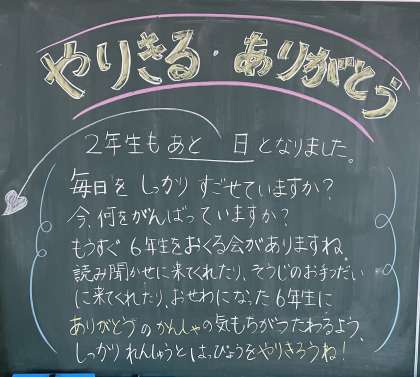 やりきる・ありがとう
2年生もあと　日となりました。
毎日をしっかりすごせていますか?
今、何をがんばっていますか?
もうすぐ6年生をおくる会がありますね。
読み聞かせに来てくれたり、そうじのお手つだい
に来てくれたり、おせわになった6年生に
ありがとうのかんしゃの気もちがつたわるよう、
しっかりれんしゅうとはっぴょうをやりきろうね!